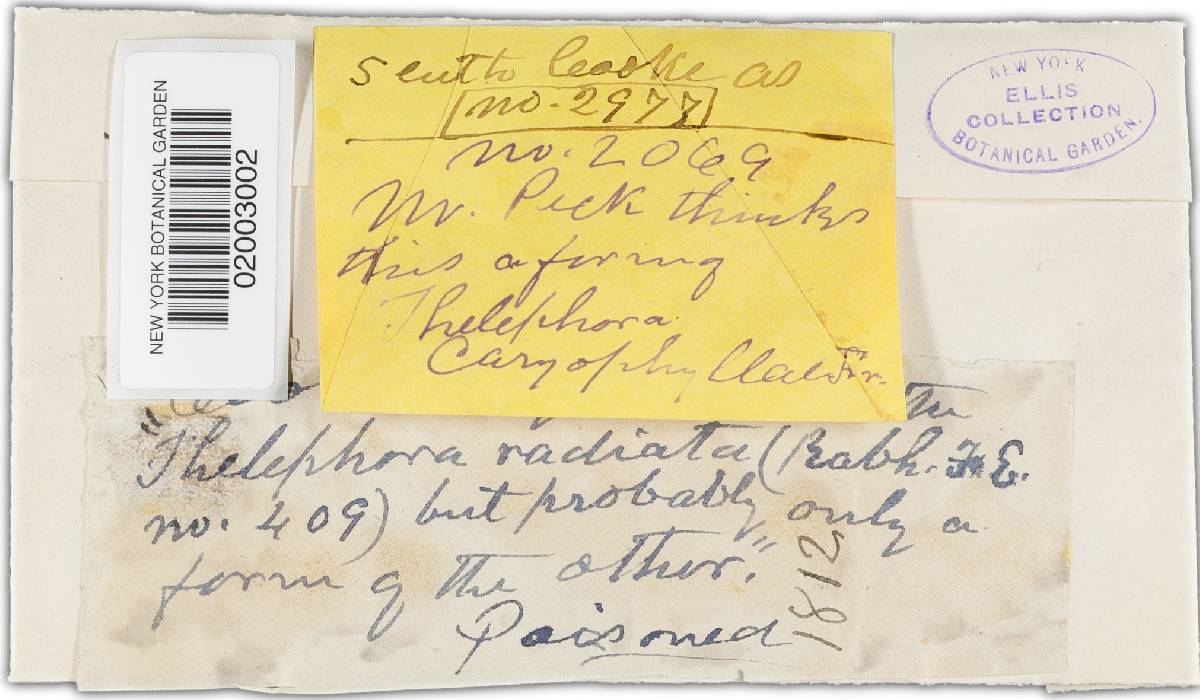 NEW YORK BOTANICAL GARDEN
02003002
sent to Cooke as
no. 2977
no. 2069
Mr. Peck thinks
this a form of
Thelephora
Caryophyllaea Fr.
NEW YORK
ELLIS
COLLECTION
BOTANICAL GARDEN.
the
Thelephora radiata (Rabh. F. E.
no. 409) but probably only a
form of the other."
Poisoned
1812